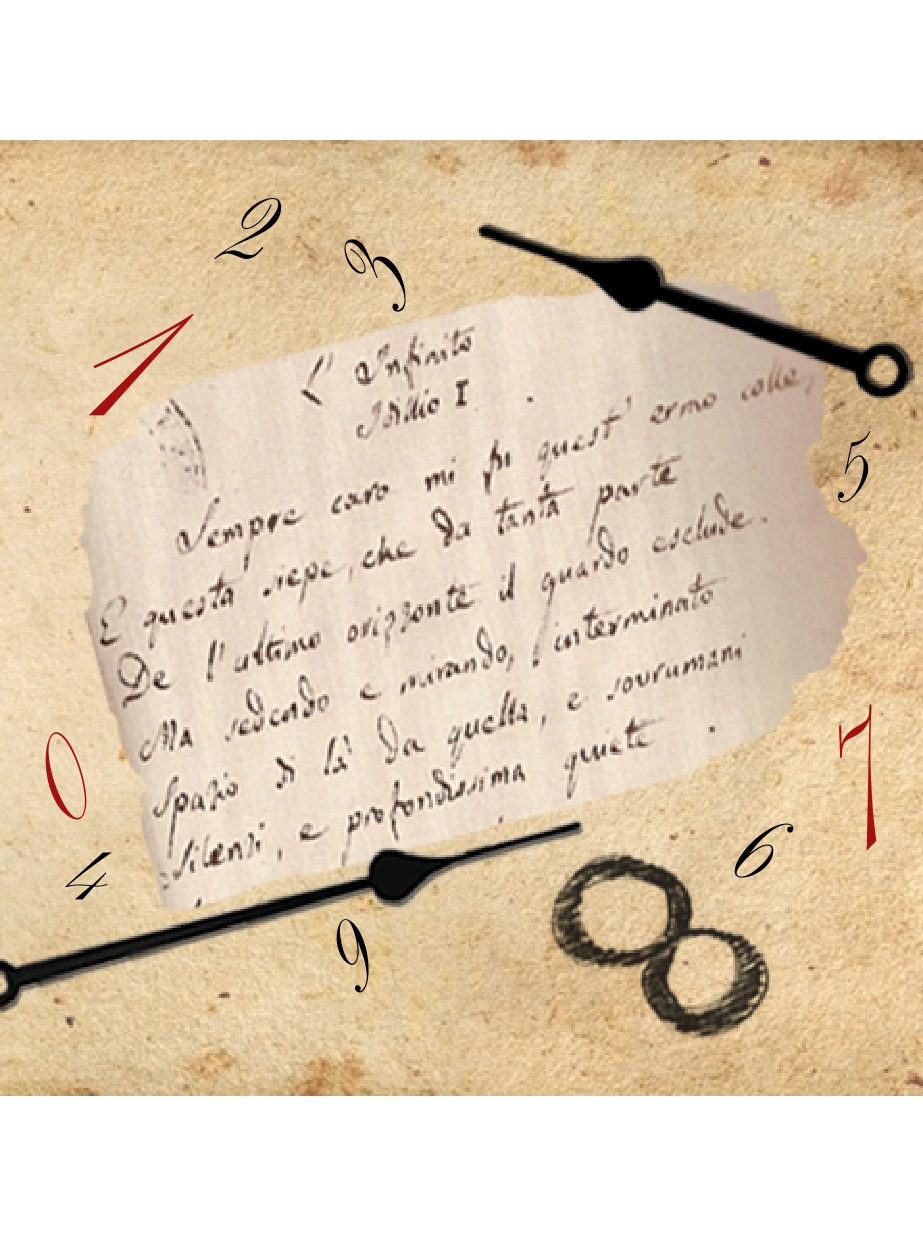 2
3
1
L' Infinito
Idillio I.
Sempre caro mi fu quest' ermo colle,
E questa siepe, che da tanta parte
De l'ultimo orizzonte il guardo esclude.
Ma sedendo e mirando, l'interminato
Spazio di là da quella, e sovrumani
Silenzi, e profondissima quiete.
5
0
7
4
6
9
8